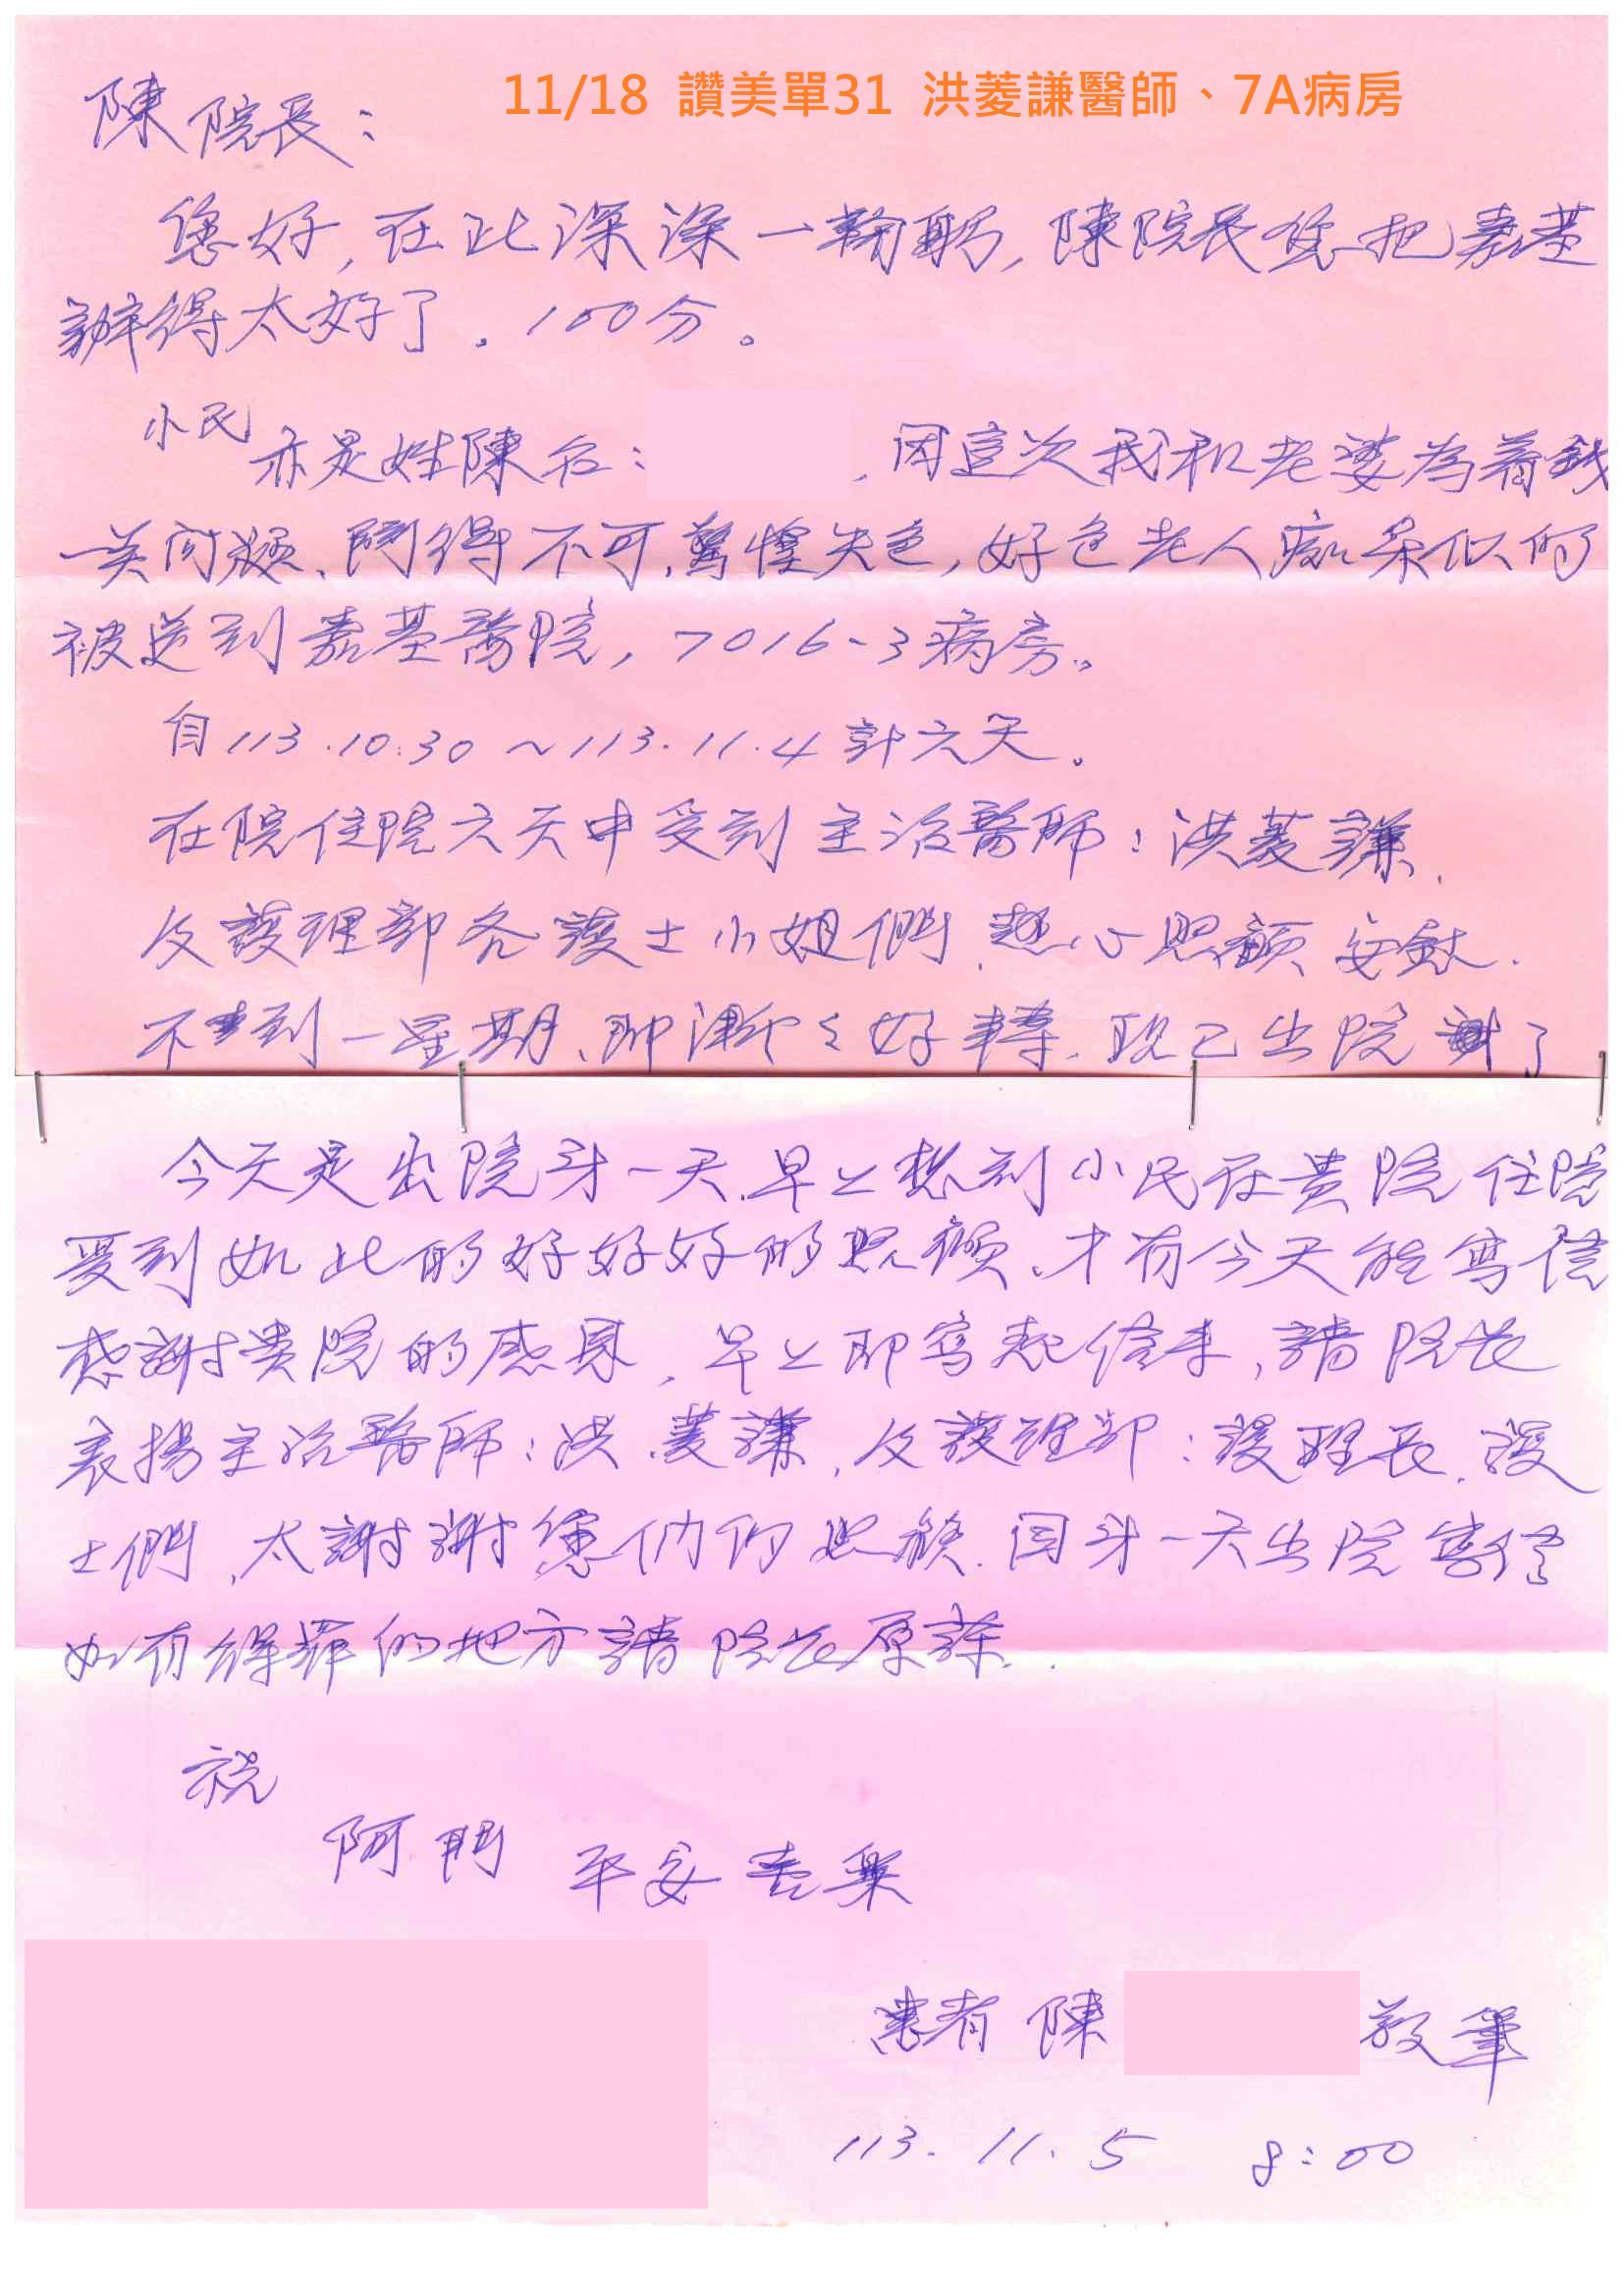 11/18 讚美單31 洪菱謙醫師、7A病房
陳院長：
您好，在此深深一鞠躬，陳院長您把嘉基
辦得太好了。100分。
小民亦是姓陳名：，因這次我和老婆為着錢
一关问題、鬧得不可，驚惶失色，好色老人痴呆似的
被送到嘉基醫院，7016-3病房。
自113.10.30～113.11.4計六天。
在院住院六天中受到主治醫師：洪菱謙、
及護理部各護士小姐們、熱心照顧安慰.
不到一星期、即漸々好轉.現已出院了
今天是出院第一天.早上想到小民在貴院住院
受到如此的好好好的照顧、才有今天能寫信
感謝貴院的感恩，早上即寫起信來，請院長
表揚主治醫師：洪菱謙，及護理部：護理長.護
士們，太謝謝您们的照顧.因第一天出院寫信
如有得罪的地方請院長原諒.
祝
阿門 平安喜樂
患者 陳 敬筆
113.11.5 8:00